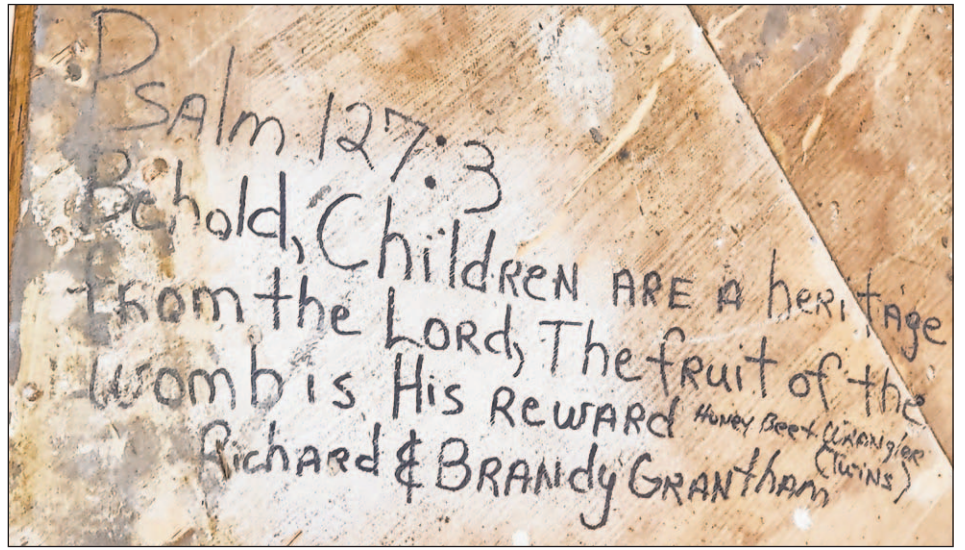 Psalm 127:3
Behold, Children ARE A heritage
from the Lord, The fruit of the
womb is His Reward Honey Bee + Wrangler
(Twins)
Richard & Brandy Grantham